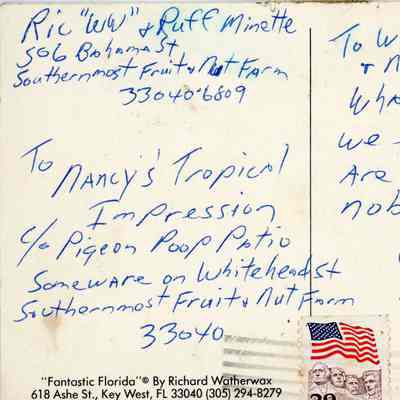 Ric "WW" & Puff Minette
506 Bahama St
Southernmost Fruit & Nut Farm
33040-6809
To
Nancy's Tropical
Impression
c/o Pigeon Poop Patio
Someware on Whitehead St
Southernmost Fruit & Nut Farm
33040
"Fantastic Florida"® By Richard Watherwax
618 Ashe St., Key West, FL 33040 (305) 294-8279
To W
Wha
we
Are
nob